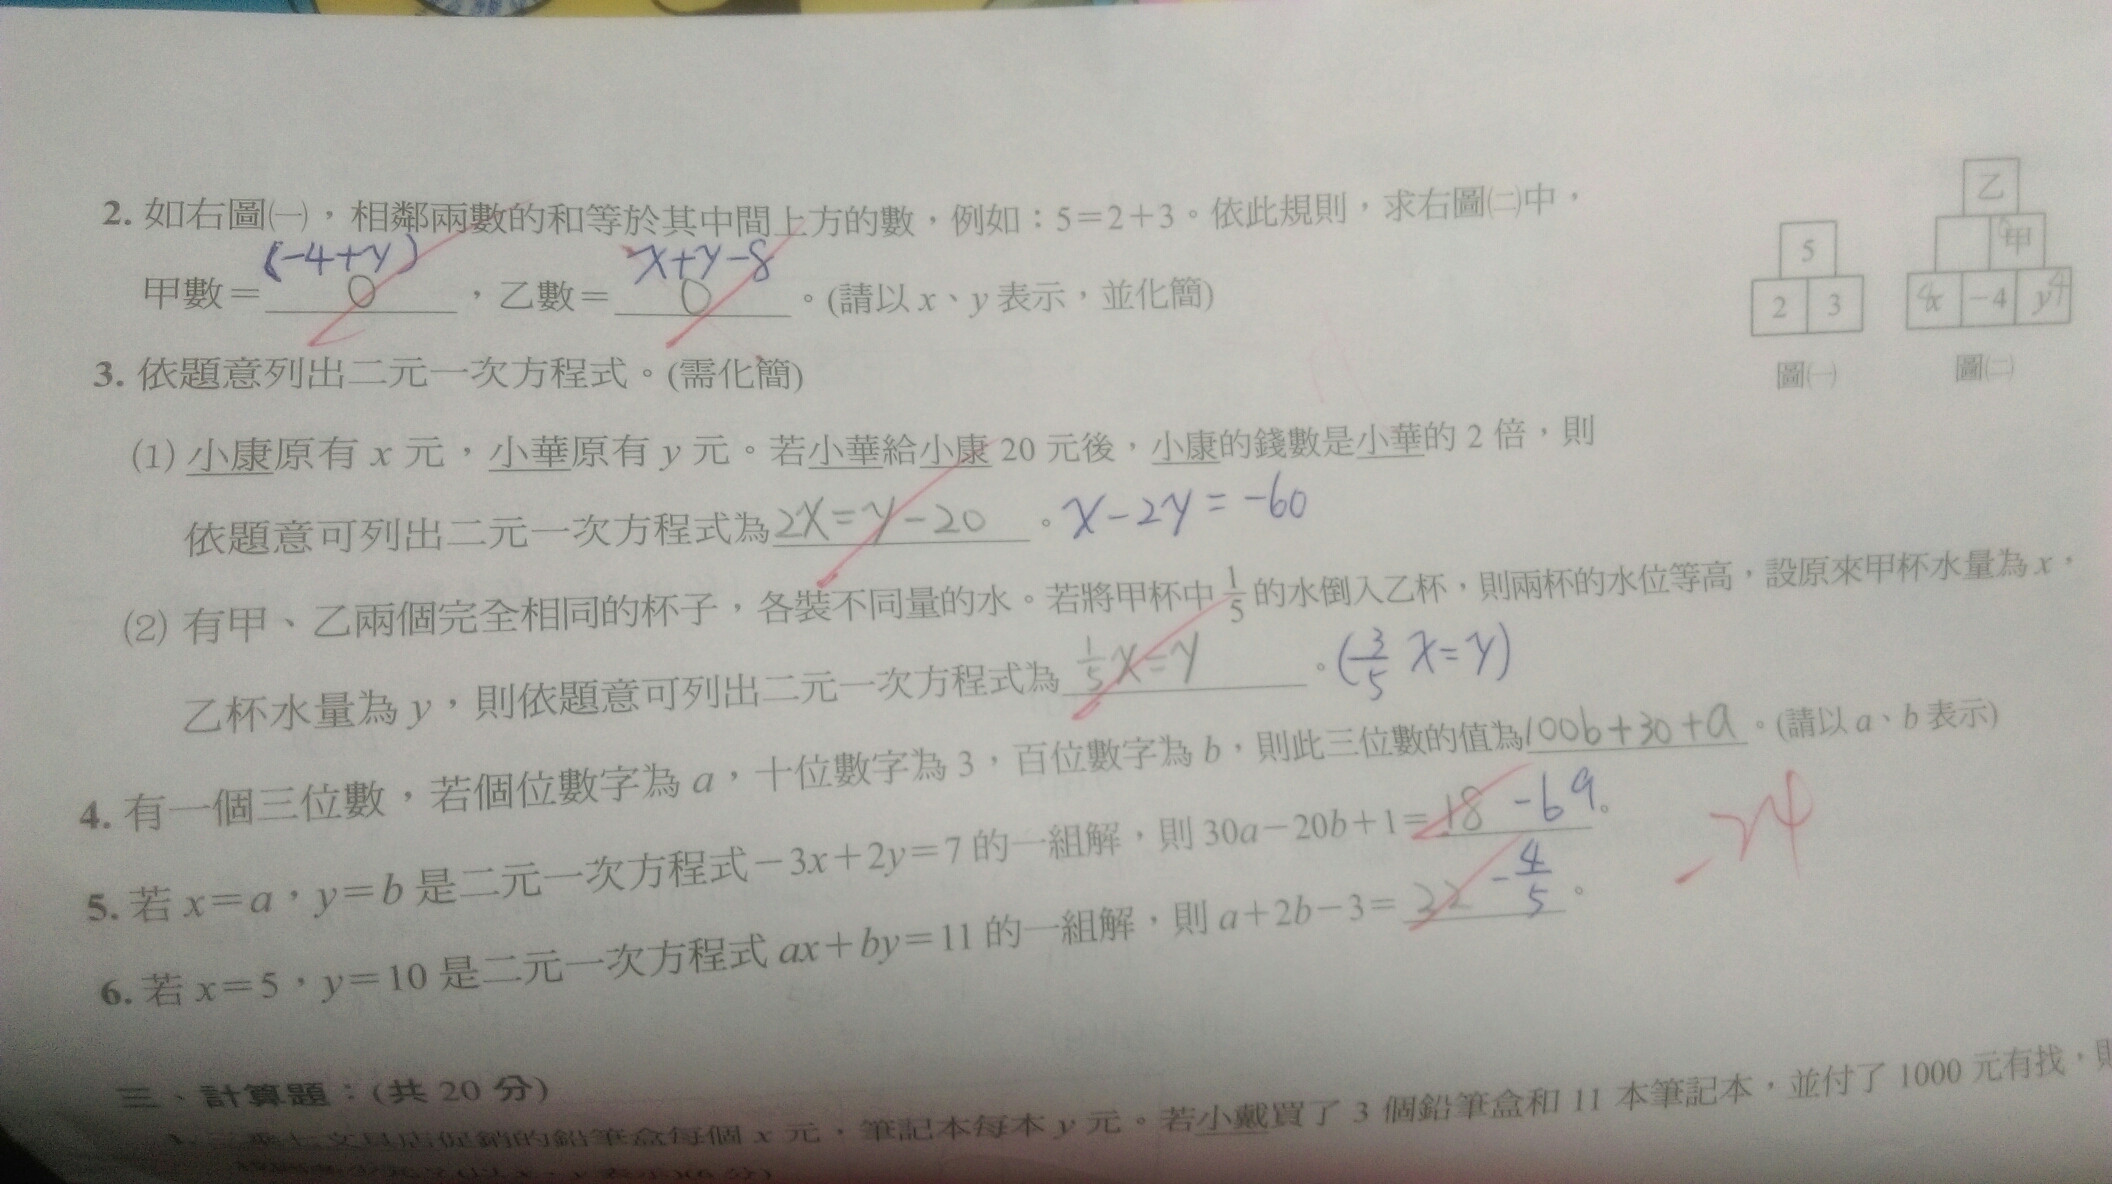 2. 如右圖㈠，相鄰兩數的和等於其中間上方的數，例如：5＝2＋3。依此規則，求右圖㈡中，
(-4+y) x+y-8
甲數＝ 0 ，乙數＝ 0 。(請以 x、y 表示，並化簡)
5
2 3
圖㈠
乙
甲
x -4 y
圖㈡
3. 依題意列出二元一次方程式。(需化簡)
(1) 小康原有 x 元，小華原有 y 元。若小華給小康 20 元後，小康的錢數是小華的 2 倍，則
依題意可列出二元一次方程式為 2x=y-20 。 x-2y=-60
(2) 有甲、乙兩個完全相同的杯子，各裝不同量的水。若將甲杯中 1/5 的水倒入乙杯，則兩杯的水位等高，設原來甲杯水量為 x，
乙杯水量為 y，則依題意可列出二元一次方程式為 1/5 x=y 。(3/5 x=y)
4. 有一個三位數，若個位數字為 a，十位數字為 3，百位數字為 b，則此三位數的值為 100b+30+a 。(請以 a、b 表示)
5. 若 x＝a，y＝b 是二元一次方程式－3x＋2y＝7 的一組解，則 30a－20b＋1＝ 18 -69 。
-24
6. 若 x＝5，y＝10 是二元一次方程式 ax＋by＝11 的一組解，則 a＋2b－3＝ 22 -4/5 。
三、計算題：(共 20 分)
文具店促銷的鉛筆盒每個 x 元，筆記本每本 y 元。若小戴買了 3 個鉛筆盒和 11 本筆記本，並付了 1000 元有找，則